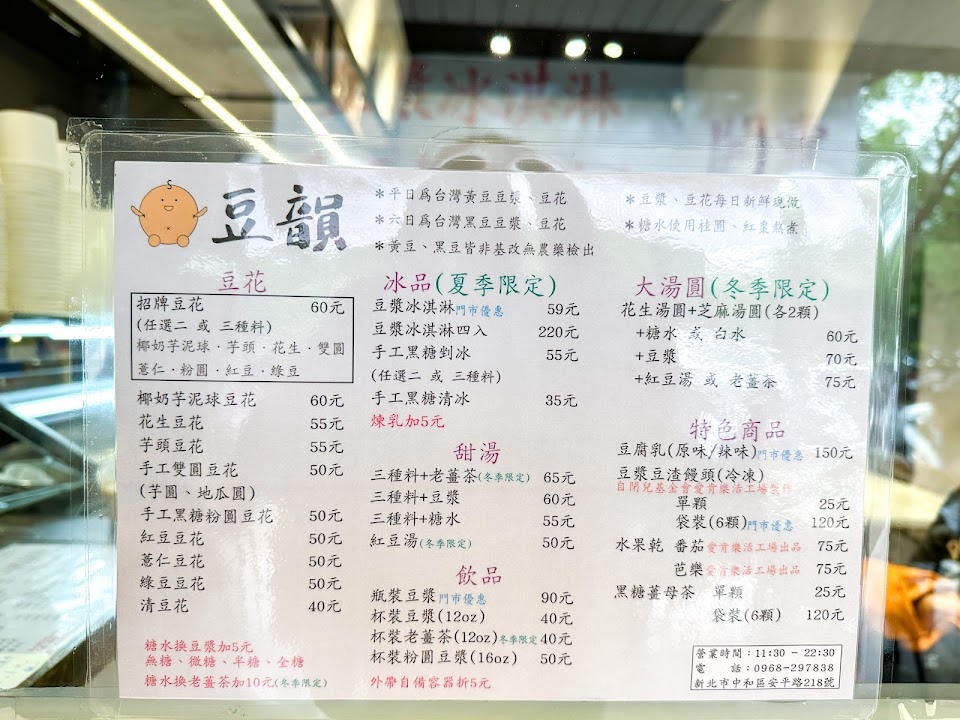 漿冰淇淋
豆韻
＊平日為台灣黃豆豆漿、豆花
＊六日為台灣黑豆豆漿、豆花
＊黃豆、黑豆皆非基改無農藥檢出
＊豆漿、豆花每日新鮮現做
＊糖水使用桂圓、紅棗熬煮
豆花
招牌豆花 60元
(任選二 或 三種料)
椰奶芋泥球·芋頭·花生·雙圓
薏仁·粉圓·紅豆·綠豆
椰奶芋泥球豆花 60元
花生豆花 55元
芋頭豆花 55元
手工雙圓豆花 50元
(芋圓、地瓜圓)
手工黑糖粉圓豆花 50元
紅豆豆花 50元
薏仁豆花 50元
綠豆豆花 50元
清豆花 40元
糖水換豆漿加5元
無糖、微糖、半糖、全糖
糖水換老薑茶加10元(冬季限定)
冰品(夏季限定)
豆漿冰淇淋門市優惠 59元
豆漿冰淇淋四入 220元
手工黑糖剉冰 55元
(任選二 或 三種料)
手工黑糖清冰 35元
煉乳加5元
甜湯
三種料+老薑茶(冬季限定) 65元
三種料+豆漿 60元
三種料+糖水 55元
紅豆湯(冬季限定) 50元
飲品
瓶裝豆漿門市優惠 90元
杯裝豆漿(12oz) 40元
杯裝老薑茶(12oz)冬季限定 40元
杯裝粉圓豆漿(16oz) 50元
外帶自備容器折5元
大湯圓(冬季限定)
花生湯圓+芝麻湯圓(各2顆)
+糖水 或 白水 60元
+豆漿 70元
+紅豆湯 或 老薑茶 75元
特色商品
豆腐乳(原味/辣味)門市優惠 150元
豆漿豆渣饅頭(冷凍)
自閉兒基金會愛肯樂活工場製作
單顆 25元
袋裝(6顆)門市優惠 120元
水果乾 番茄愛肯樂活工場出品 75元
芭樂愛肯樂活工場出品 75元
黑糖薑母茶 單顆 25元
袋裝(6顆) 120元
營業時間：11:30 - 22:30
電 話：0968-297838
新北市中和區安平路218號